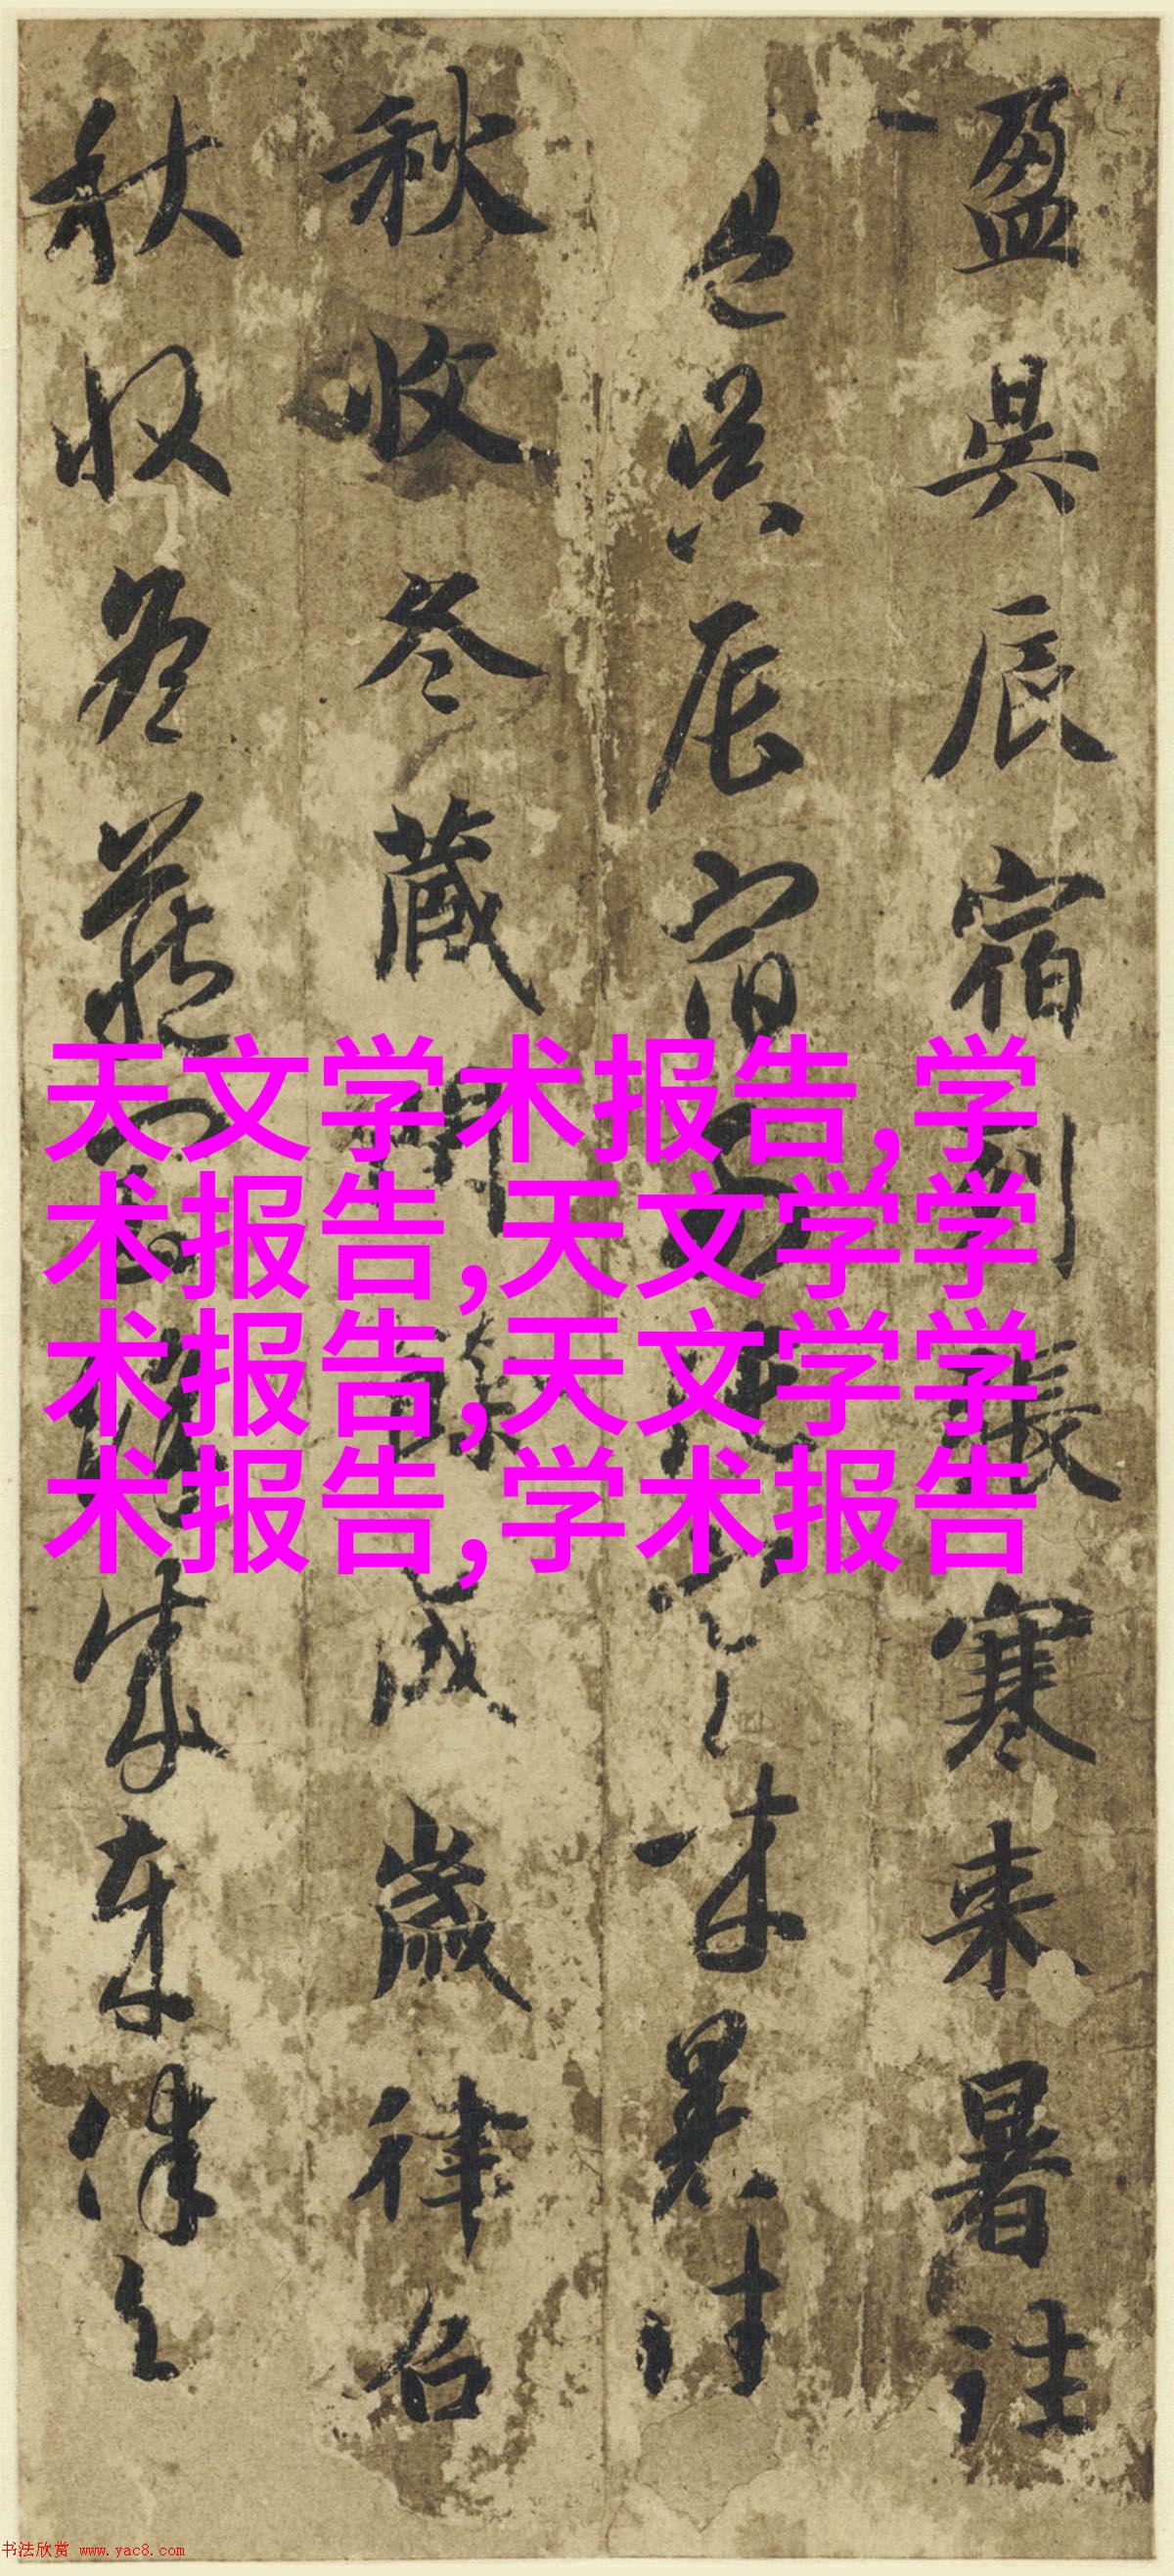 盈昃辰宿列張寒来暑往
盈昃辰宿列張寒来暑往
秋收冬藏閏餘成歲律召
秋收冬藏閏餘成歲律召
天文学术报告,学
术报告,天文学学
术报告,天文学学
术报告,学术报告
书法欣赏 www.yac8.com